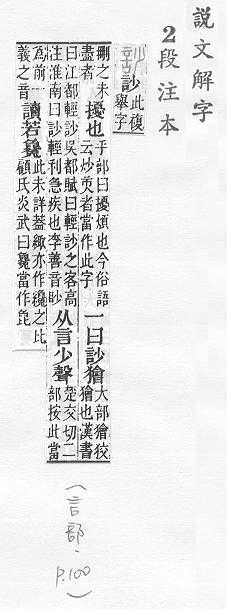 說文解字
2段注本
訬
訬此複
舉字
刪之未
盡者
擾也
手部曰擾煩也今俗語
云炒㶣者當作此字
一曰訬獪
犬部獪狡
獪也漢書
曰江都輕訬吳都賦曰輕訬之客高
注淮南曰訬輕利急疾也李善音眇
从言少聲
楚交切二
部按此當
爲前一
義之音
讀若毚
此未詳葢毚亦作纔之比
顧氏炎武曰毚當作毚
(言部.
P.100)